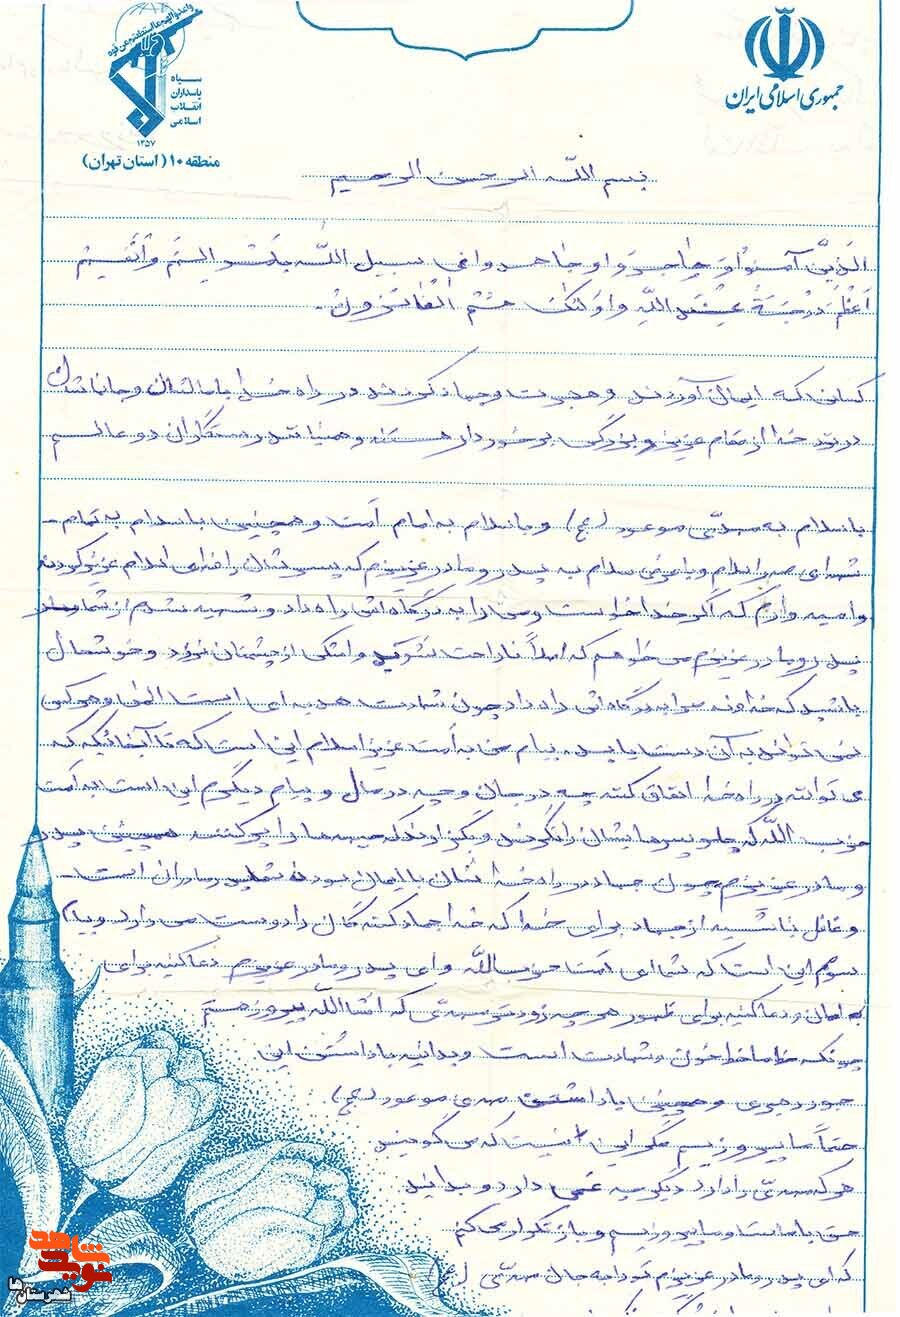 واعدوا لهم ما استطعتم من قوة
سپاه
پاسداران
انقلاب
اسلامی
۱۳۵۷
منطقه ۱۰ (استان تهران)
جمهوری اسلامی ایران
بسم الله الرحمن الرحیم
الَّذینَ آمَنُوا وَ هاجَرَوا وَ جاهَدوا فی سبیل اللّه بِاَموالِهِم وَ اَنفُسِهِم
اَعظَمُ دَرَجَةً عِندَ اللّهِ وَ اولئکَ هُمُ الفائزونَ
کسانی که ایمان آوردند و هجرت و جهاد کردند در راه خدا با مالشان و جانشان
در نزد خدا از مقام عزیز و بزرگی برخوردار هستند و همینانند رستگاران دو عالم
با سلام به مهدی موعود (عج) و با سلام به امام امت و همچنین با سلام به تمام
شهدای صدر اسلام و با عرض سلام به پدر و مادر عزیزم که پسرشان را فدای اسلام عزیز کردند
و امید وارم که اگر خدا خواست و من را به درگاه اش راه داد و شهید شدم از شما
پدر و مادر عزیزم می خواهم که اصلاً ناراحت نشوید و اشکی از چشمتان نرود و خوشحال
باشید که خداوند مرا به درگاه اش راه داد چون شهادت هدیه ای است الهی و هر کس
نمی تواند به آن دست یابد. پیام من به امت عزیز اسلام این است که تا آنجائیکه که
می توانند در راه خدا انفاق کنند چه در جان و چه در مال و پیام دیگرم این است به امت
حزب اللّه که جلو پسرهایشان را نگیرند و بگذارند که جبهه ها را پر کنند همچنین پدر
و مادر عزیزم چون جهاد در راه خدا نشان با ایمان بودن
و غافل نباشید از جهاد برای خدا که خدا جهاد کنندگان را دوست می دارد و پیام
سوم این است که شما ای امت حزب اللّه و ای پدر و مادر عزیزم دعا کنید برای
امام و دعا کنید برای ظهور هر چه زودتر مهدی که انشااللّه پیروز هستیم
چونکه خط ما خط خون و شهادت است و بدانید با داشتن این
جور رهبری و همچنین با داشتن مهدی موعود (عج)
حتماً ما پیروزیم مگر این نیست که می گویند
هر که مهدی را دارد دیگر چه غمی دارد و بدانید
حق با ماست و ما پیروزیم و باز تکرار می کنم
که ای پدر و مادر عزیزم تو را به جان مهدی (عج)
نوید شاهد
شهرستان‌ها